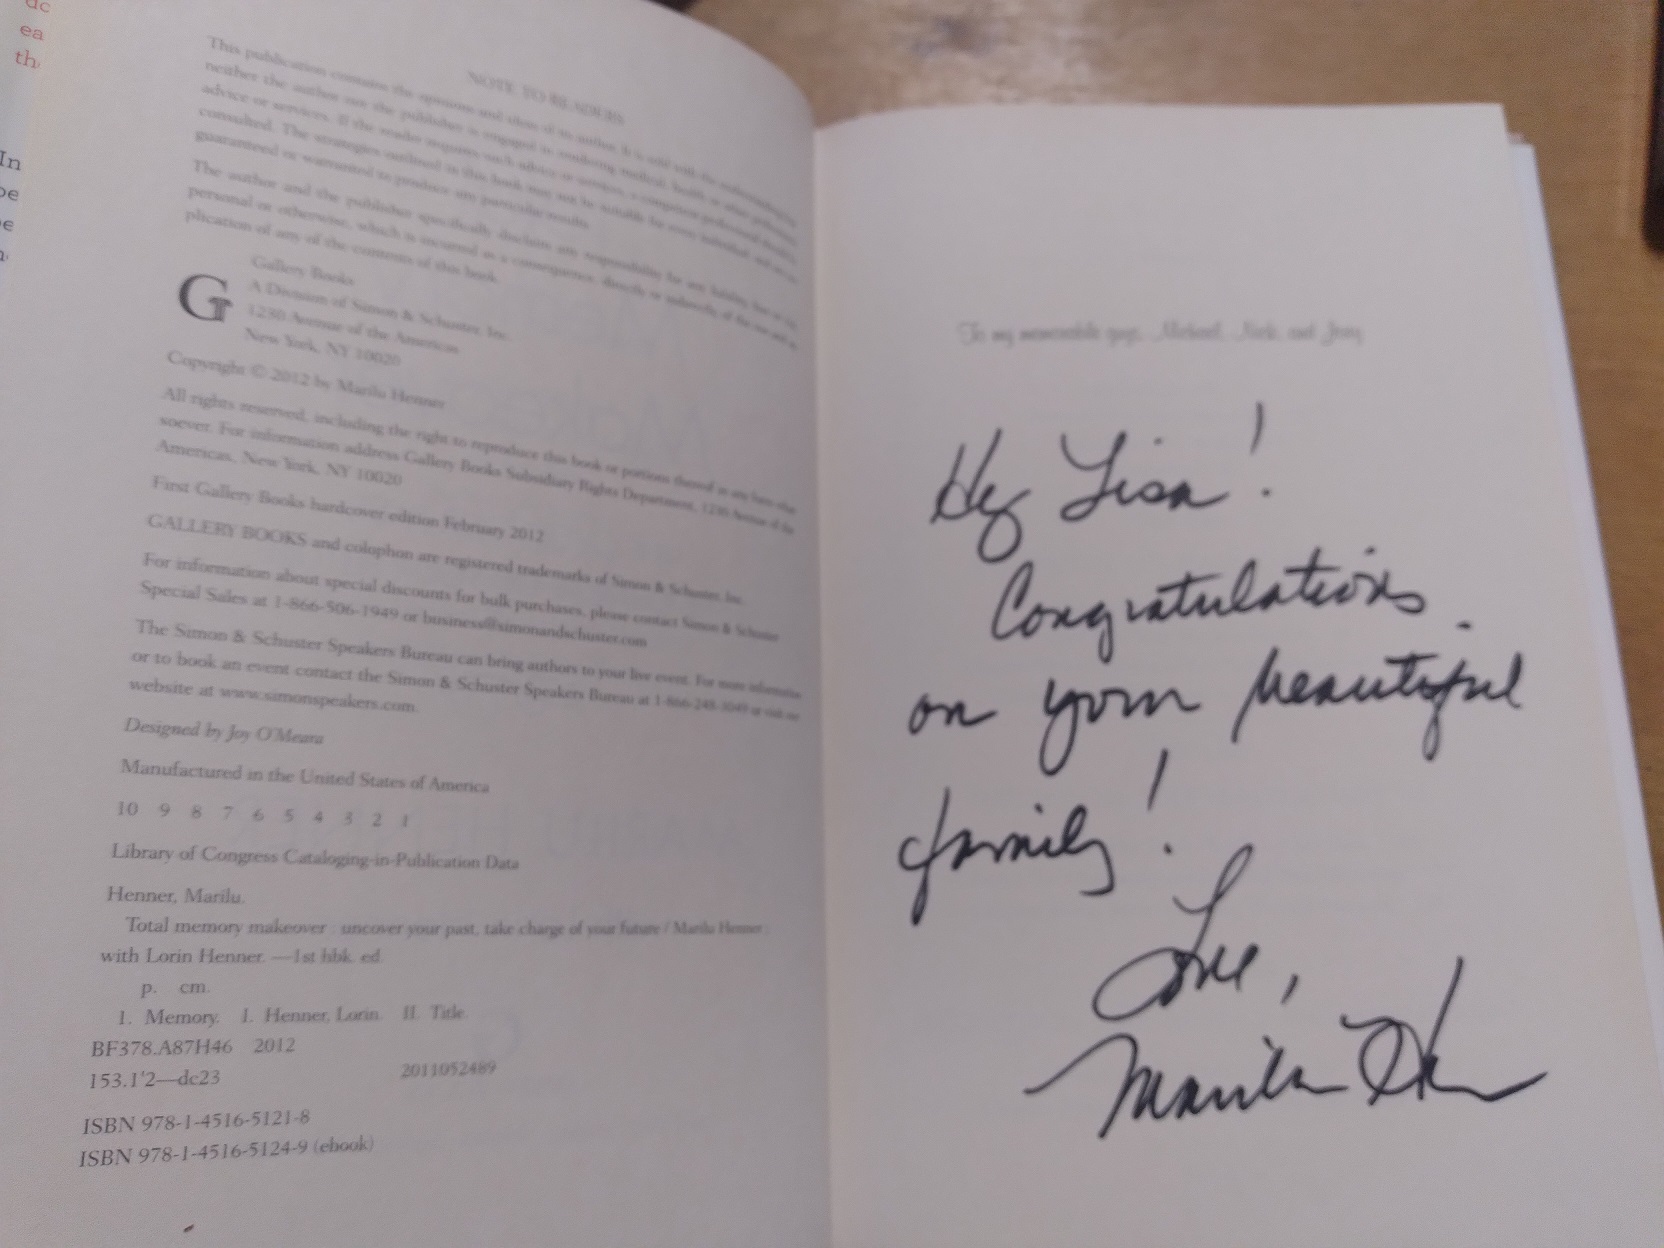 dc
ea
th
In
be
be
NOTE TO READERS
This publication contains the opinions and ideas of its author. It is sold with the understanding that
neither the author nor the publisher is engaged in rendering medical, health or other
advice or services. If the reader requires such advice or services, a competent professional should be
consulted. The strategies outlined in this book may not be suitable for every individual and are not
guaranteed or warranted to produce any particular results.
The author and the publisher specifically disclaim any responsibility for any liability, loss or risk,
personal or otherwise, which is incurred as a consequence, directly or indirectly, of the use and ap-
plication of any of the contents of this book.
G
Gallery Books
A Division of Simon & Schuster, Inc.
1230 Avenue of the Americas
New York, NY 10020
Copyright © 2012 by Marilu Henner
All rights reserved, including the right to reproduce this book or portions thereof in any form what-
soever. For information address Gallery Books Subsidiary Rights Department, 1230 Avenue of the
Americas, New York, NY 10020
First Gallery Books hardcover edition February 2012
GALLERY BOOKS and colophon are registered trademarks of Simon & Schuster, Inc.
For information about special discounts for bulk purchases, please contact Simon & Schuster
Special Sales at 1-866-506-1949 or business@simonandschuster.com
The Simon & Schuster Speakers Bureau can bring authors to your live event. For more information
or to book an event contact the Simon & Schuster Speakers Bureau at 1-866-248-3049 or visit our
website at www.simonspeakers.com.
Designed by Joy O'Meara
Manufactured in the United States of America
10 9 8 7 6 5 4 3 2 1
Library of Congress Cataloging-in-Publication Data
Henner, Marilu.
Total memory makeover : uncover your past, take charge of your future / Marilu Henner ;
with Lorin Henner. —1st hbk. ed.
p. cm.
1. Memory. I. Henner, Lorin. II. Title.
BF378.A87H46 2012
153.1'2—dc23 2011052489
ISBN 978-1-4516-5121-8
ISBN 978-1-4516-5124-9 (ebook)
To my memorable guys, Michael, Nick, and Joey
Hey Lisa!
Congratulations
on your beautiful
family!
Love,
Marilu H